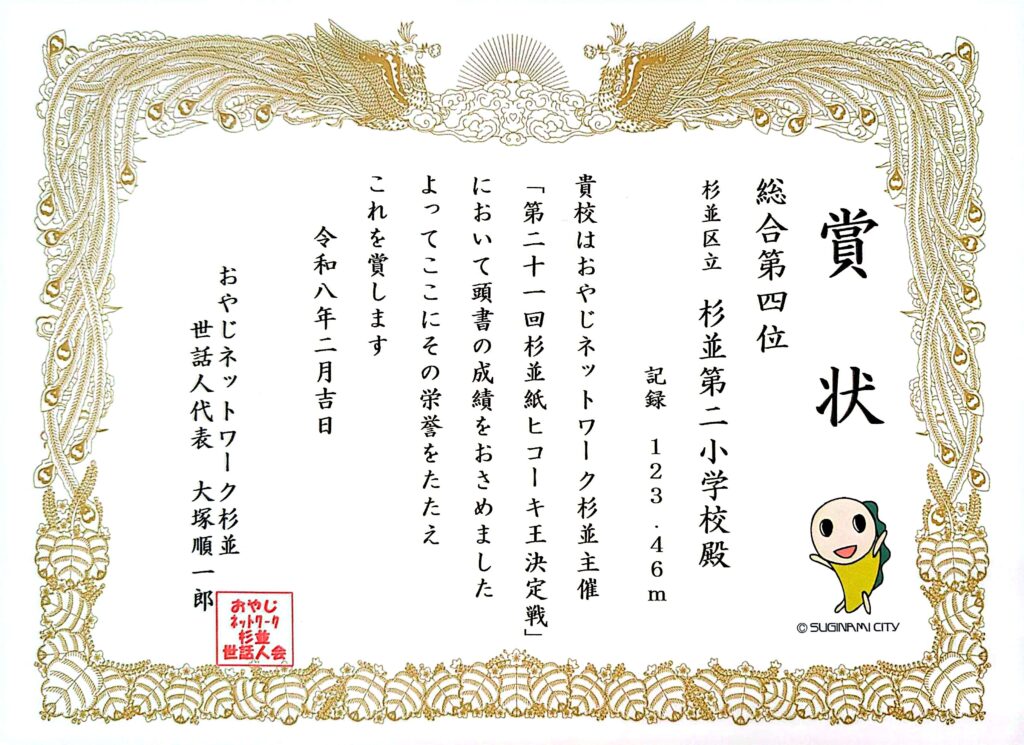 賞状
総合第四位
杉並区立 杉並第二小学校殿
記録 123.46m
貴校はおやじネットワーク杉並主催
「第二十一回杉並紙ヒコーキ王決定戦」
において頭書の成績をおさめました
よってここにその栄誉をたたえ
これを賞します
令和八年二月吉日
おやじネットワーク杉並
世話人代表 大塚順一郎
おやじ
ネットワーク
杉並
世話人会
© SUGINAMI CITY